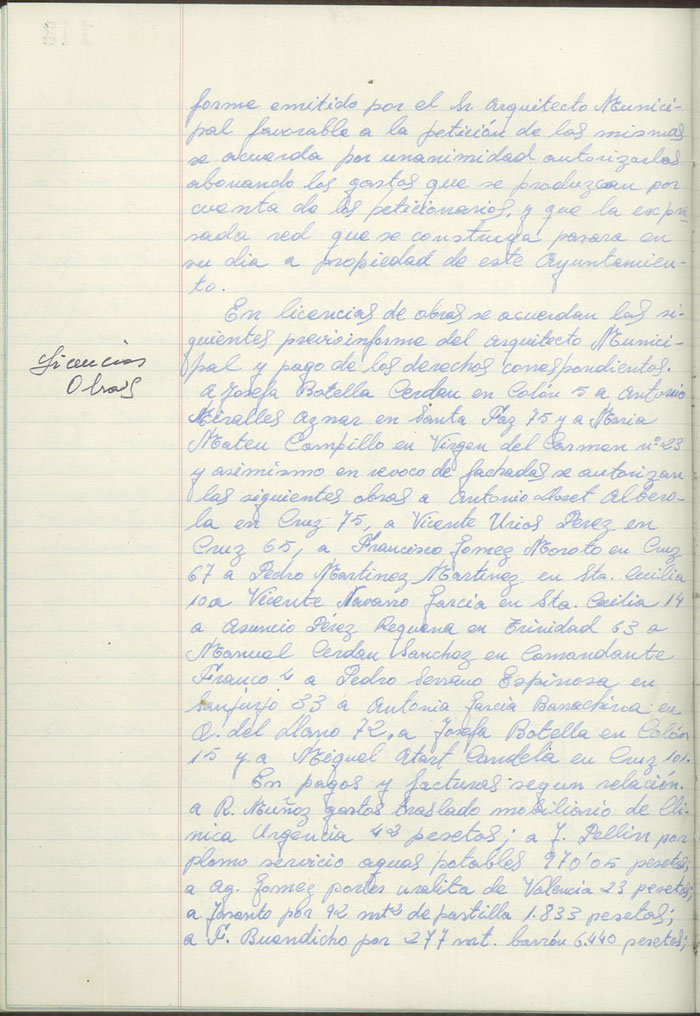 forme emitido por el Sr Arquitecto Munici-
pal favorable a la petición de las mismas
se acuerda por unanimidad autorizarlas
abonando los gastos que se produzcan por
cuenta de los peticionarios, y que la expre-
sada red que se construya pasara en
su dia a propiedad de este Ayuntamien-
to.
En licencias de obras se acuerdan las si-
guientes previo informe del Arquitecto Munici-
Licencias
Obras
pal y pago de los derechos correspondientes.
A Josefa Botella Cerdan en Colón 5 a Antonio
Miralles Aznar en Santa Faz 75 y a Maria
Mateu Campillo en Virgen del Carmen nº 23
y asimismo en revoco de fachadas se autorizan
las siguientes obras a Antonio Lloset Albero-
la en Cruz 75, a Vicente Urios Perez en
Cruz 65, a Francisco Gomez Moroto en Cruz
67 a Pedro Martinez Martinez en Sta. Cecilia
10 a Vicente Navarro Garcia en Sta. Cecilia 14
a Asuncio Pérez Requena en Trinidad 63 a
Manuel Cerdan Sanchez en Comandante
Franco 4 a Pedro Serrano Espinosa en
Sanjurjo 33 a Antonia Garcia Barrachina en
Q. del Llano 72, a Josefa Botella en Colón
15 y a Miguel Candela en Cruz 101.
En pagos y facturas segun relación.
a R. Muñoz gastos traslado mobiliario de Cli-
nica Urgencia 42 pesetas; a J. Pellin por
plomo servicio aguas potables 970'05 pesetas;
a Ag. Gomez portes uralita de Valencia 23 pesetas;
a por 92 mt² de pastilla 1.833 pesetas;
a F. Buendicho por 277 mt. 6.440 pesetas;